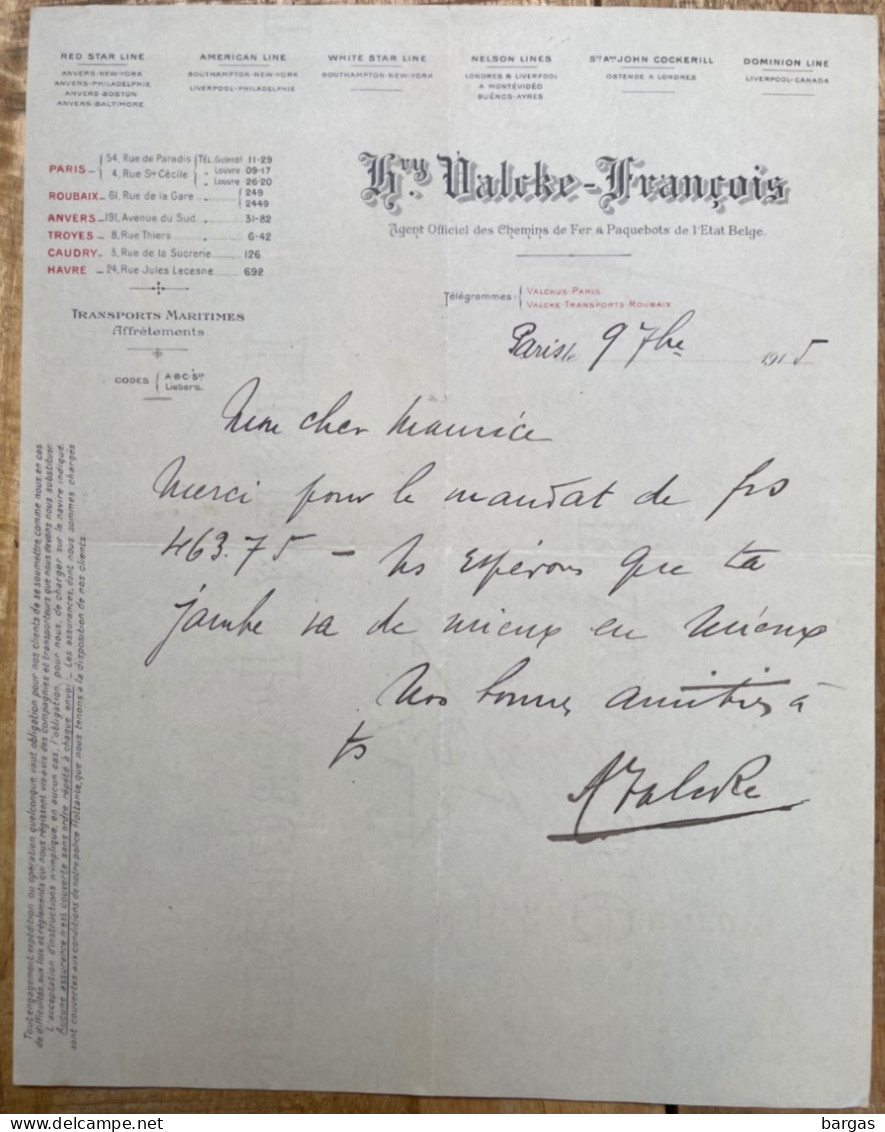 RED STAR LINE
ANVERS-NEW-YORK
ANVERS-PHILADELPHIE
ANVERS-BOSTON
ANVERS-BALTIMORE
AMERICAN LINE
SOUTHAMPTON-NEW-YORK
LIVERPOOL-PHILADELPHIE
WHITE STAR LINE
SOUTHAMPTON-NEW-YORK
NELSON LINES
LONDRES & LIVERPOOL
A MONTÉVIDÉO
BUÉNOS-AYRES
Sté Ame JOHN COCKERILL
OSTENDE A LONDRES
DOMINION LINE
LIVERPOOL-CANADA
PARIS - 54, Rue de Paradis TÉL. Gutenbg 11-29
4, Rue Ste Cécile " Louvre 09-17
" Louvre 26-20
ROUBAIX - 61, Rue de la Gare " 249
2449
ANVERS - 191, Avenue du Sud " 31-82
TROYES - 8, Rue Thiers " 6-42
CAUDRY - 3, Rue de la Sucrerie 126
HAVRE - 24, Rue Jules Lecesne 692
TRANSPORTS MARITIMES
Affrètements
CODES A-B-C-5th
Liebers.
Hry Valcke-François
Agent Officiel des Chemins de Fer & Paquebots de l'Etat Belge.
Télégrammes: VALCKUS PARIS
VALCKE-TRANSPORTS ROUBAIX
Paris le 9 7bre 1915
Mon cher Maurice
Merci pour le mandat de frs
463.75 - Ns espérons que ta
jambe va de mieux en mieux
Nos bonnes amitiés à
ts
Valcke
Tout engagement, expédition ou opération quelconque vaut obligation pour nos clients de se soumettre comme nous, en cas
de difficultés, aux lois et règlements qui nous régissent vis-à-vis des compagnies et transporteurs que nous devons nous substituer.
L'acceptation d'instructions n'implique, en aucun cas, l'obligation, pour nous, de charger sur le navire indiqué.
Aucune assurance n'est couverte sans ordre répété à chaque envoi - Les assurances, dont nous sommes chargés
sont couvertes aux conditions de notre police flottante, que nous tenons à la disposition de nos clients.
bargas